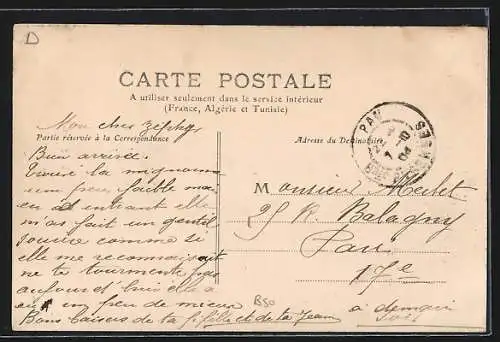 D
CARTE POSTALE
A utiliser seulement dans le service intérieur
(France, Algérie et Tunisie)
Partie réservée à la Correspondance
Adresse du Destinataire
Mon cher zéphyr
Bien arrivée.
Trouvé la mignonne
un peu faible mais
en entrant elle
m'as fait un gentil
sourire comme si
elle me reconnaissait
ne te tourmente pas
aujourd'hui elle a
un peu de mieux
Bons baisers de ta fille et de ta Jeanne
à demain
B50
PAU
Monsieur
25 R. Balagny
Paris
17e